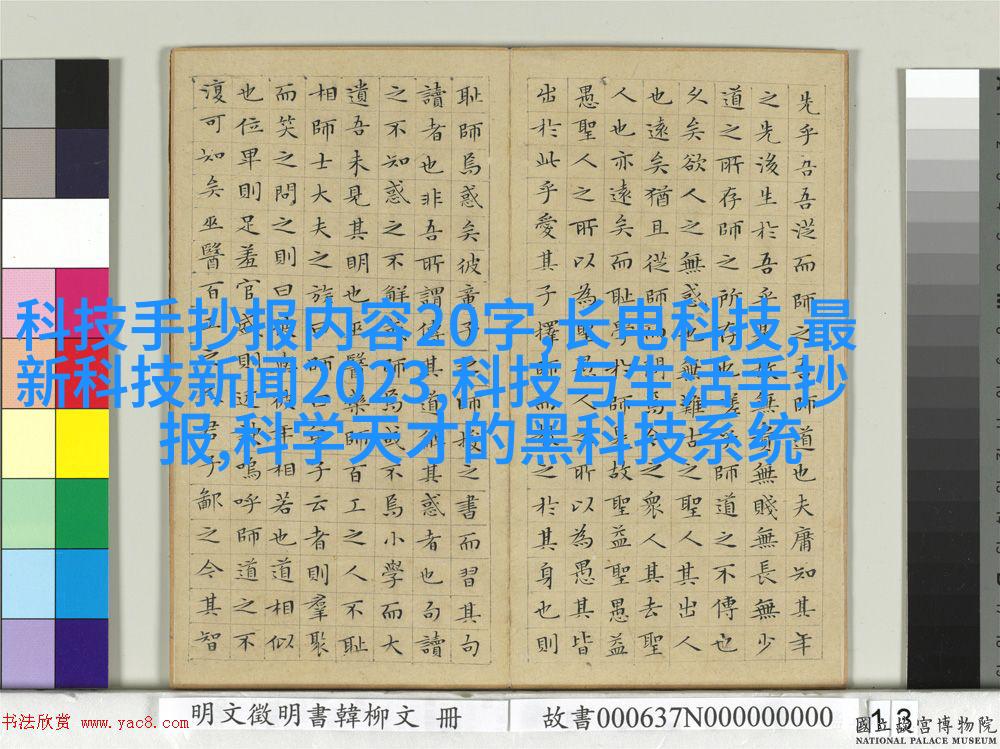 先乎吾吾從而師之吾師道也夫庸知其年
之先後生於吾乎是故無貴無賤無長無少
道之所存師之所存也嗟乎師道之不傳也
久矣欲人之無惑也無難古之聖人其出人
也遠矣猶且從師而問焉今之衆人其去聖
人也亦遠矣而恥學於師是故聖益聖愚益
愚聖人之所以為聖愚人之所以為愚其皆
出於此乎愛其子擇師而教之於其身也則
恥師焉惑矣彼童子之師授之書而習其句
讀者也非吾所謂傳其道解其惑者也句讀
之不知惑之不解或師焉或不焉小學而大
遺吾未見其明也巫醫樂師百工之人不恥
相師士大夫之族曰師曰弟子云者則羣聚
而笑之問之則曰彼與彼年相若也道相似
也位卑則足羞官盛則近諛嗚呼師道之不
復可知矣巫醫百工之人君子鄙之今其智
科技手抄报内容20字,长电科技,最
新科技新闻2023,科技与生活手抄
报,科学天才的黑科技系统
书法欣赏 www.yac8.com
明文徵明書韓柳文 冊
故書000637N000000000
13
國立故宮博物院
NATIONAL PALACE MUSEUM